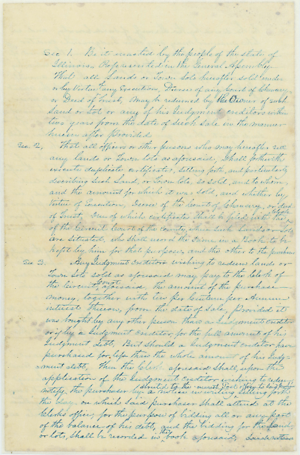 Sec 1. Be it enacted by the people of the state of
Illinois Represented in the General Assembly
That all Lands or Town Lots hereafter sold under
by virtue of any Execution, Decree of any Court of Chancery,
or Deed of Trust, may be redeemed by the Owner of said
land or Lot or any of his Judgment creditors within
two years from the date of such Sale in the manner
herein after provided.
Sec. 2, That all officers or other persons who may hereafter sell
any lands or Town Lots as aforesaid, Shall for the
duplicate certificates, setting forth, and particularly
describing Such Land or Town Lots So sold, and to whom,
and the amount for which it was sold, and whether by
virtue of Execution, Decree of the Court of Chancery, or Deed
of Trust, One of which certificates Shall be filed with
of the Circuit Court of the County, in which Such Lands or Lots
are situated, who Shall record the same in a Book to be
kept by him for that purpose, and the other to the purchaser
Sec 3. Any Judgment creditor wishing to redeem lands or
Town Lots sold as aforesaid may pay to the Clerk of
the Circuit Court aforesaid the amount of the purchase
money, together with ten per Centum per Annum
interest thereon, from the date of Sale, Provided it
was bought by any other person than a Judgment creditor
or by a Judgment creditor for the full amount of his
Judgment debt. But should a Judgment creditor have
purchased for less than the whole amount of his Judg-
ment debt, Then the Clerk aforesaid Shall upon the
application of the Judgment creditor wishing to
notify the purchaser
the day on which Said purchaser Shall attend at the
Clerks office, for the purpose of bidding all or any part
of the balance of his debt, and the bidding for the lands
or lots, Shall be recorded in book aforesaid,